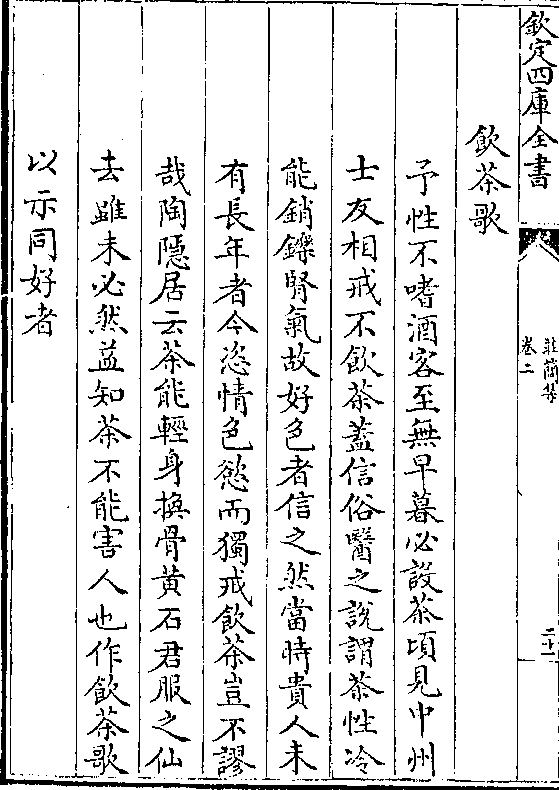 欽定四庫全書
莊簡集
卷二
二十一
飲茶歌
予性不嗜酒客至無早暮必設茶頃見中州
士友相戒不飲茶蓋信俗醫之說謂茶性冷
能銷鑠腎氣故好色者信之然當時貴人未
有長年者今恣情色慾而獨戒飲茶豈不謬
哉陶隱居云茶能輕身換骨黃石君服之仙
去雖未必然益知茶不能害人也作飲茶歌
以示同好者